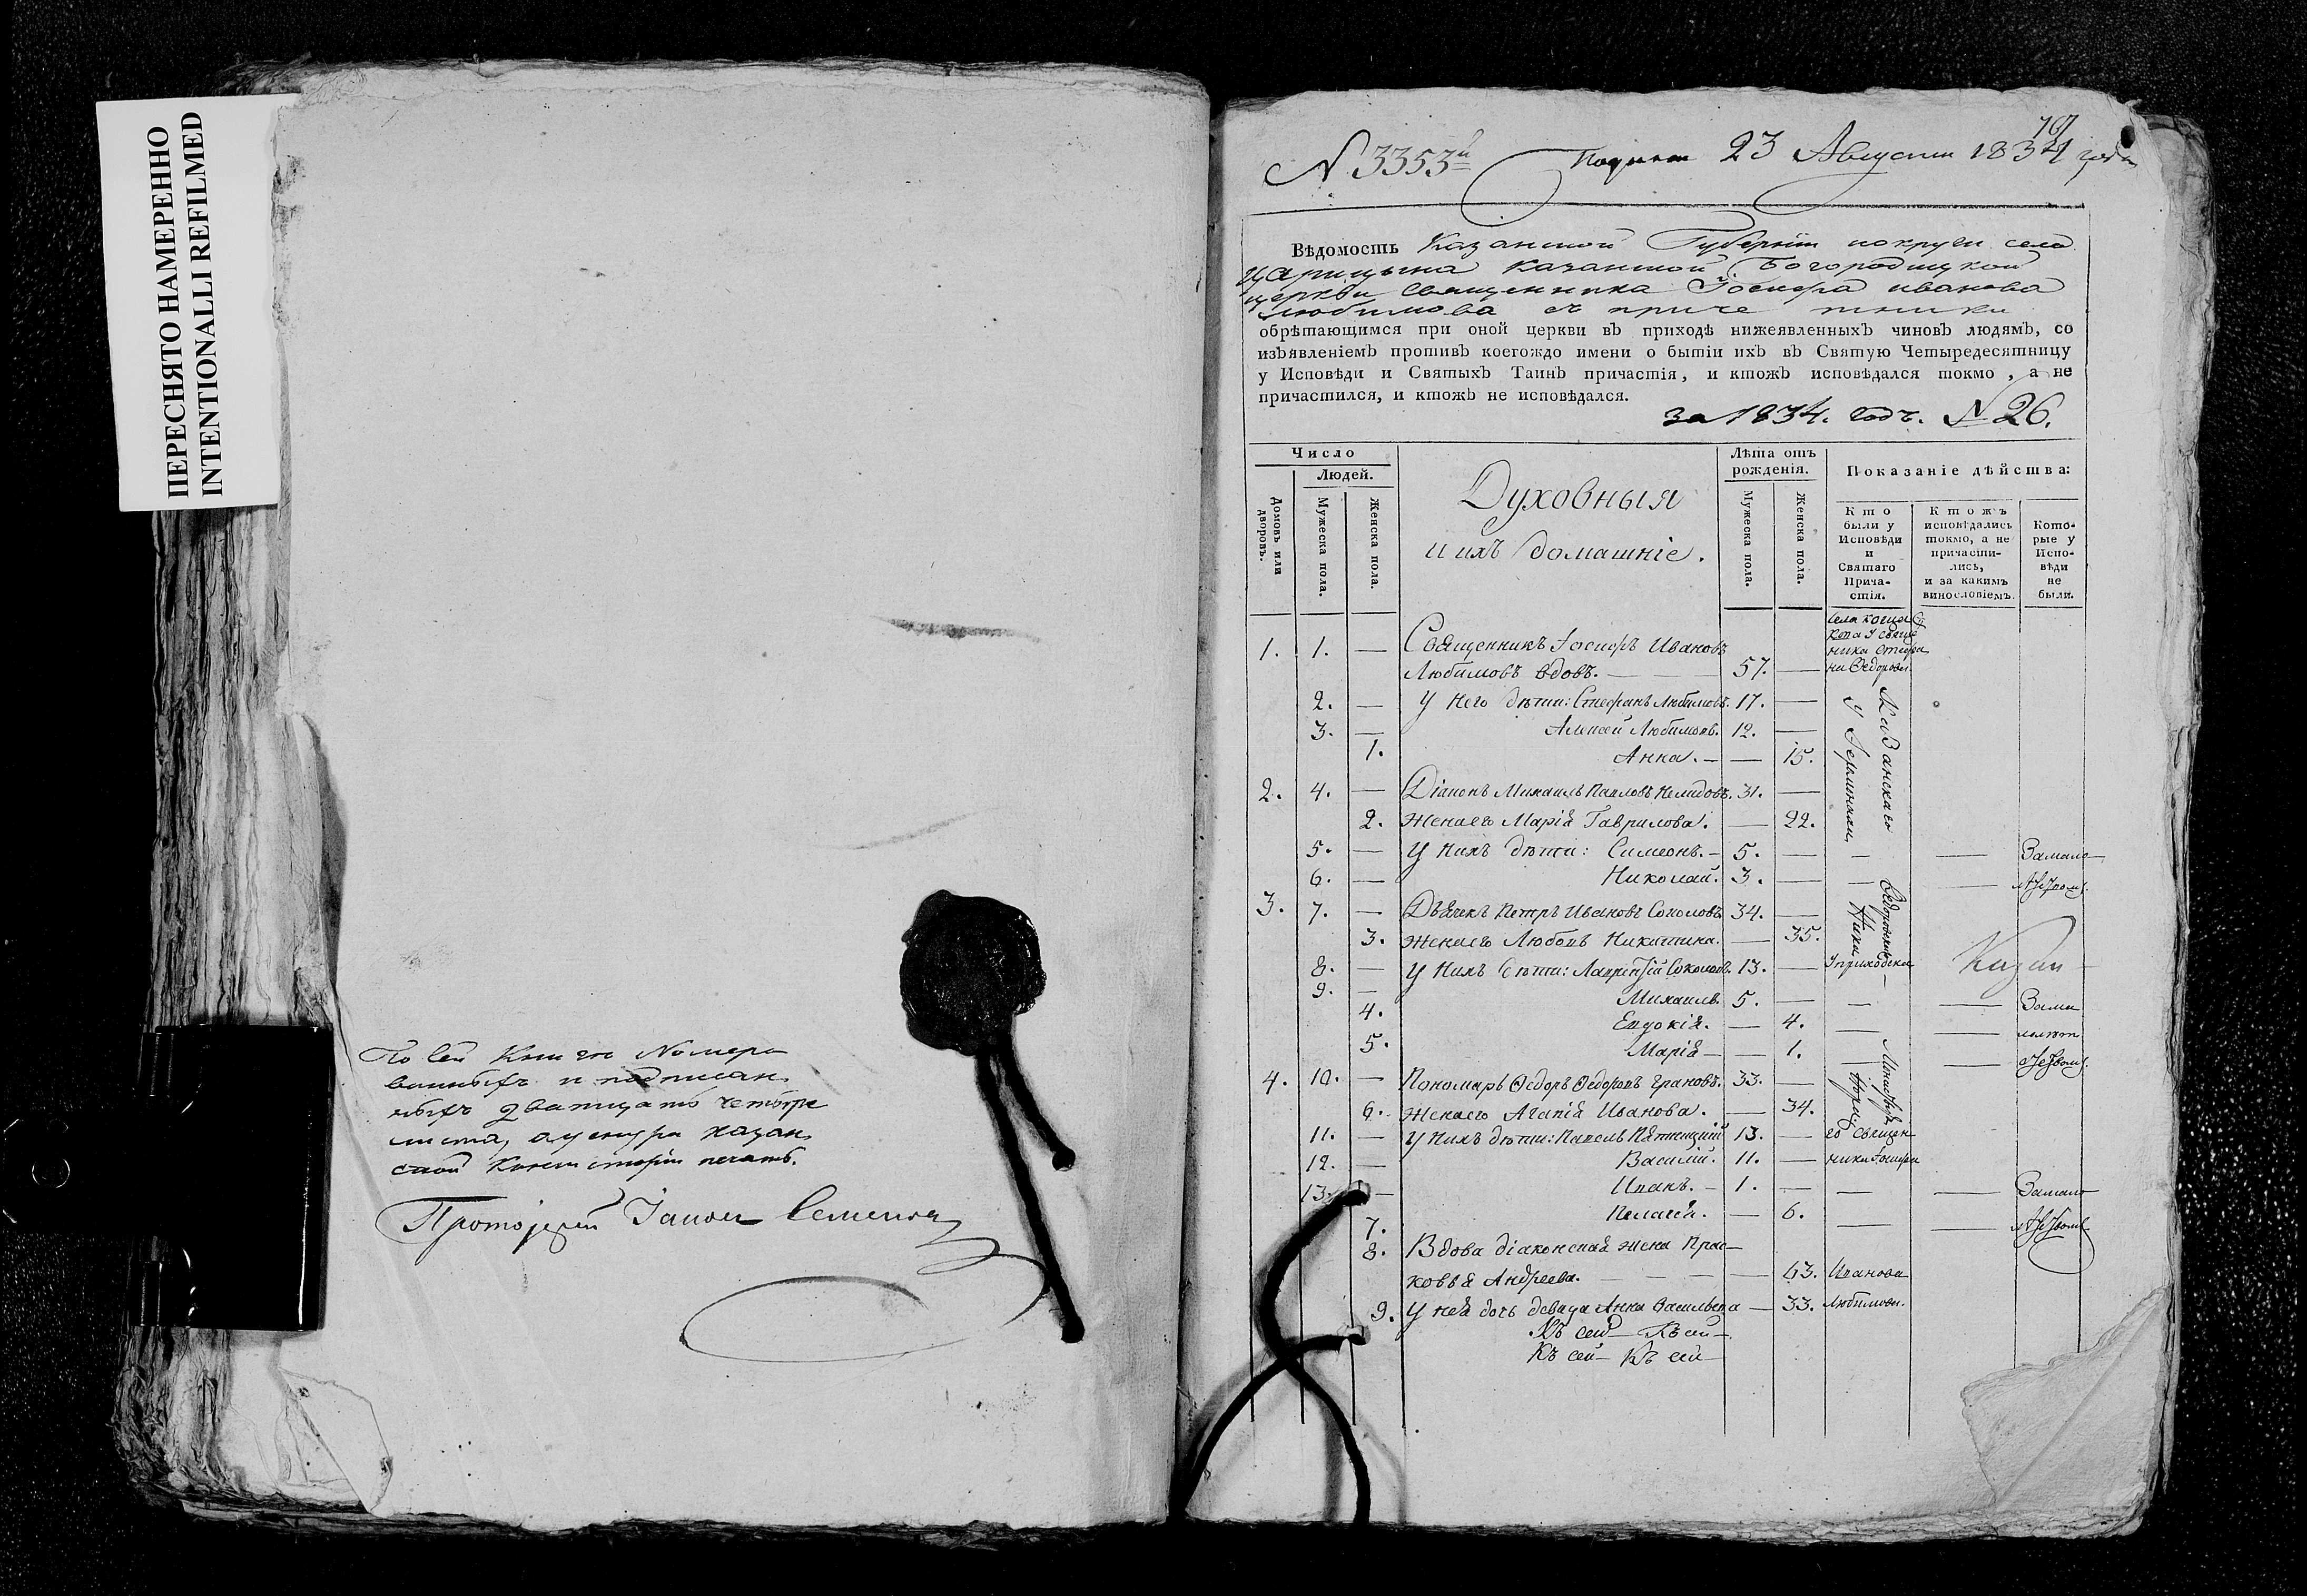 ПЕРЕСНЯТО НАМЕРЕННО
INTENTIONALLI REFILMED
По сей Книге Номеро
ванныхъ и подписан
ныхъ дватцать четыре
листа, а у снура казан
ской Консисторіи печать.
Протоіерей Семенов
N 3353й Подана 23 Августа 1834 года
Вѣдомость Казанской Губерніи и округи села
Царицына Казанской Богородицкой
церкви священника Іосифа Иванова
Любимова съ приче тники
обрѣтающимся при оной церкви въ приходѣ нижеявленныхъ чиновъ людямъ, со
изъявленіемъ противъ коегождо имени о бытіи ихъ въ Святую Четыредесятницу
у Исповѣди и Святыхъ Таинъ причастія, и ктожъ исповѣдался токмо, а не
причастился, и ктожъ не исповѣдался.
за 1834. годъ. N 26.
Число
Людей.
Домовъ или дворовъ.
Мужеска пола.
Женска пола.
Духовныя
и ихъ домашніе.
Лѣта отъ
рожденія.
Мужеска пола.
Женска пола.
Показаніе дѣйства:
Кто
были у
Исповѣди
и
Святаго
Прича-
стія.
Ктожъ
исповѣдались
токмо, а не
причасти-
лись,
и за какимъ
винословіемъ.
Кото-
рые у
Испо-
вѣди
не
были.
1. 1. — Священникъ Іосифъ Ивановъ
Любимовъ вдовъ. — 57. —
2. — У него дѣти: Стефанъ Любимовъ. 17. —
3. — Алексѣй Любимовъ. 12. —
1. Анна. — — 15.
2. 4. — Діаконъ Михаилъ Павловъ Нелидовъ. 31. —
2. Жена его Марія Гаврилова. — 22.
5. — У нихъ дѣти: Симеонъ. — 5. — — — Замало
6. — Николай. 3. — — —
3. 7. — Дьячекъ Петръ Ивановъ Соколовъ 34. —
3. Жена его Любовь Никитина. — 35.
8. — У нихъ дѣти: Лаврентій Соколовъ. 13. —
9. — Михаилъ 5. — — — Зама
4. Евдокія. — 4. — — лолѣт
5. Марія — — 1. —
4. 10. — Пономарь Ѳедоръ Ѳедоровъ 33. —
6. Жена его Агапія Иванова. — 34.
11. — У нихъ дѣти: Павелъ 13. — го священ
12. — Василій. 11. — ника Іосифа
13. — Иванъ. — 1. — — — Замало
7. Пелагея. — 6. — —
8. Вдова діаконская жена Прас-
ковья Андреева. — 63. Иванова
9. У нея дочь девица Анна Васильева — 33. Любимова.
Къ сей — Къ сей —
Къ сей — Къ сей —